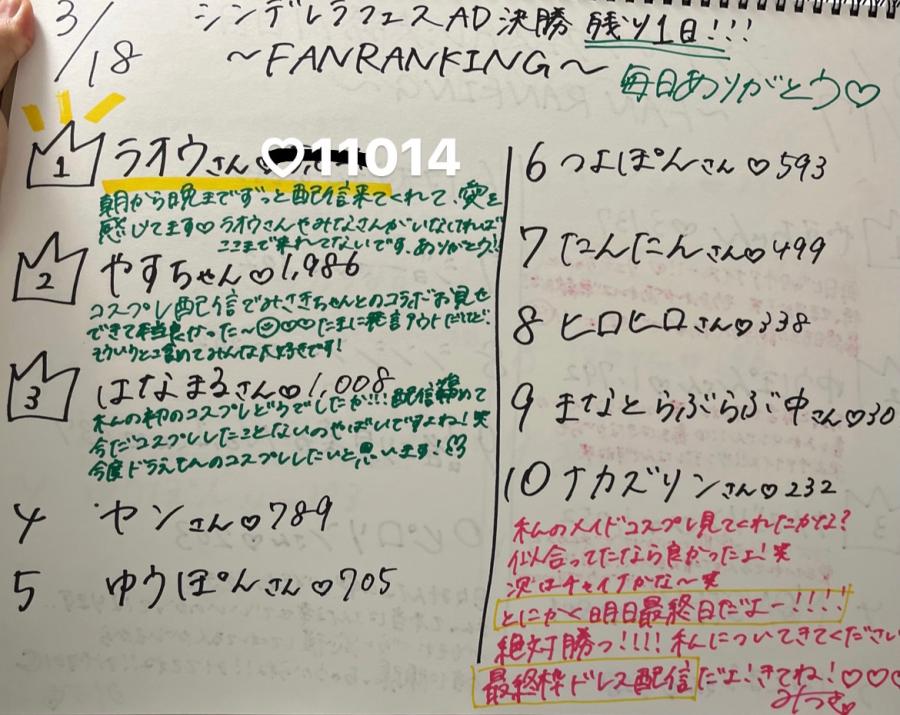 3/18
シンデレラフェスAD決勝 残り1日!!!
〜FANRANKING〜
毎日ありがとう♡
1 ラオウさん♡11014
朝から晩までずっと配信来てくれて、愛を
感じてます♡ ラオウさんやみなさんがいなければ
ここまで来れてないです、ありがとう!
2 やすちゃん♡1,986
コスプレ配信でみさきちゃんとのコラボお見せ
できて本当良かった〜♡♡♡たまに発言アウトだけど、
そういうとこ含めてみんな大好きです!
3 はなまるさん♡1,008
私の初のコスプレどうでしたか!!! 配信締めて
今だコスプレしたことないのやばいですよね!笑
今度ドラえもんのコスプレしたいと思います!♡
4 ヤンさん♡789
5 ゆうぽんさん♡705
6 つよぽんさん♡593
7 たんたんさん♡499
8 ヒロヒロさん♡338
9 まなとらぶらぶ中さん♡30
10 ナカズリンさん♡232
私のメイドコスプレ見てくれたかな?
似合ってたなら良かったよ!笑
次はチャイナかな〜笑
とにかく明日最終日だよー!!!!
絶対勝つ!!!! 私についてきてください
最終枠ドレス配信だよ!きてね!♡♡♡
みつき♡